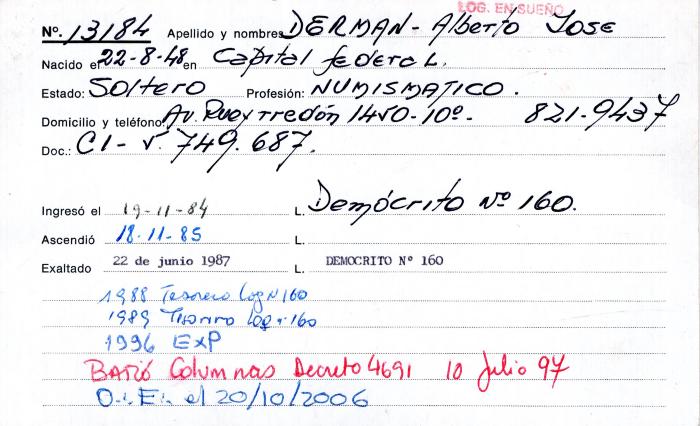 LOG. EN SUEÑO
Nº. 13184 Apellido y nombres DERMAN - Alberto JOSE
Nacido el 22-8-48 en Capital federal.
Estado: Soltero Profesión: NUMISMATICO.
Domicilio y teléfono Av. Pueyrredón 1450-10º- 821-9437
Doc.: CI- 749.687.
Ingresó el 19-11-84 L. Demócrito Nº 160.
Ascendió 18-11-85 L.
Exaltado 22 de junio 1987 L. DEMOCRITO Nº 160
1988 Tesorero Log N 160
1989 Tesorero Log 160
1996 EXP
BATIÓ Columnas Decreto 4691 10 Julio 97
O.E. el 20/10/2006